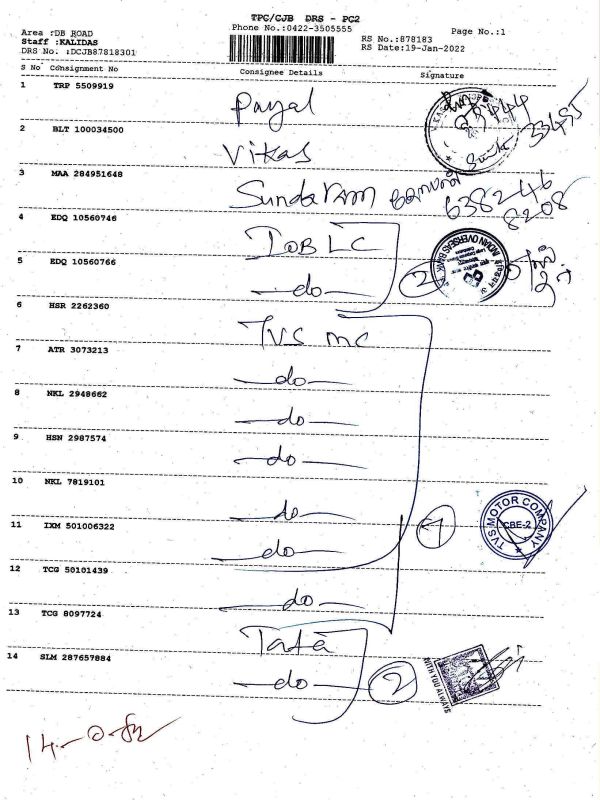 TPC/CJB DRS - PC2
Phone No.:0422-3505555
Page No.:1
Area :DB ROAD
Staff :KALIDAS
DRS No. :DCJB87818301
RS No.:878183
RS Date:19-Jan-2022
S No Consignment No Consignee Details Signature
1 TRP 5509919 Payal
2 BLT 100034500 Vikas
33495
3 MAA 284951648 Sundaram
638246
8208
4 EDQ 10560746 IOB LC
5 EDQ 10560766 -do-
2
INDIAN OVERSEAS BANK
6 HSR 2262360 TVS mc
7 ATR 3073213 -do-
8 NKL 2948662 -do-
9 HSN 2987574 -do-
10 NKL 7819101 -do-
11 IXM 501006322 -do-
7
TVS MOTOR COMPANY
CBE-2
12 TCG 50101439 -do-
13 TCG 8097724 Tata
14 SLM 287657884 -do-
2
WITH YOU ALWAYS